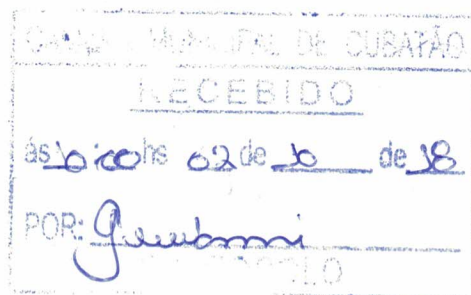 CAMARA MUNICIPAL DE CUBATÃO
RECEBIDO
ás 10:00 hs 02 de 10 de 18
POR:
PROTOCOLO